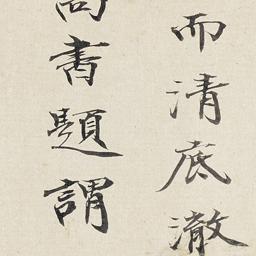 而清底澈
尚書題謂